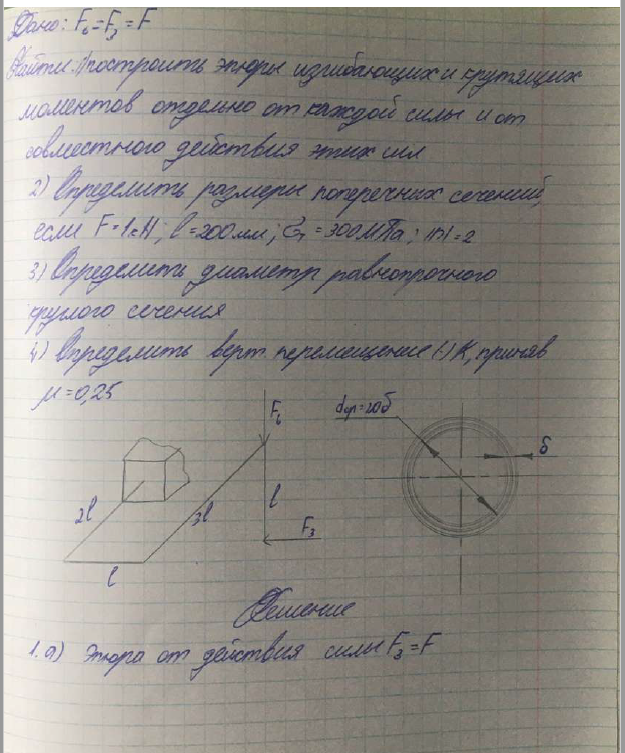 Дано: F₆=F₃=F
Найти: 1) построить эпюры изгибающих и крутящих
моментов отдельно от каждой силы и от
совместного действия этих сил
2) Определить размеры поперечных сечений,
если F=1кН; l=200мм; σт=300МПа; |n|=2
3) Определить диаметр равнопрочного
круглого сечения
4) Определить верт. перемещение (·) K, приняв
μ=0,25
F₆
dср=20δ
δ
2l
3l
l
F₃
l
Решение
1. а) Эпюра от действия силы F₃=F